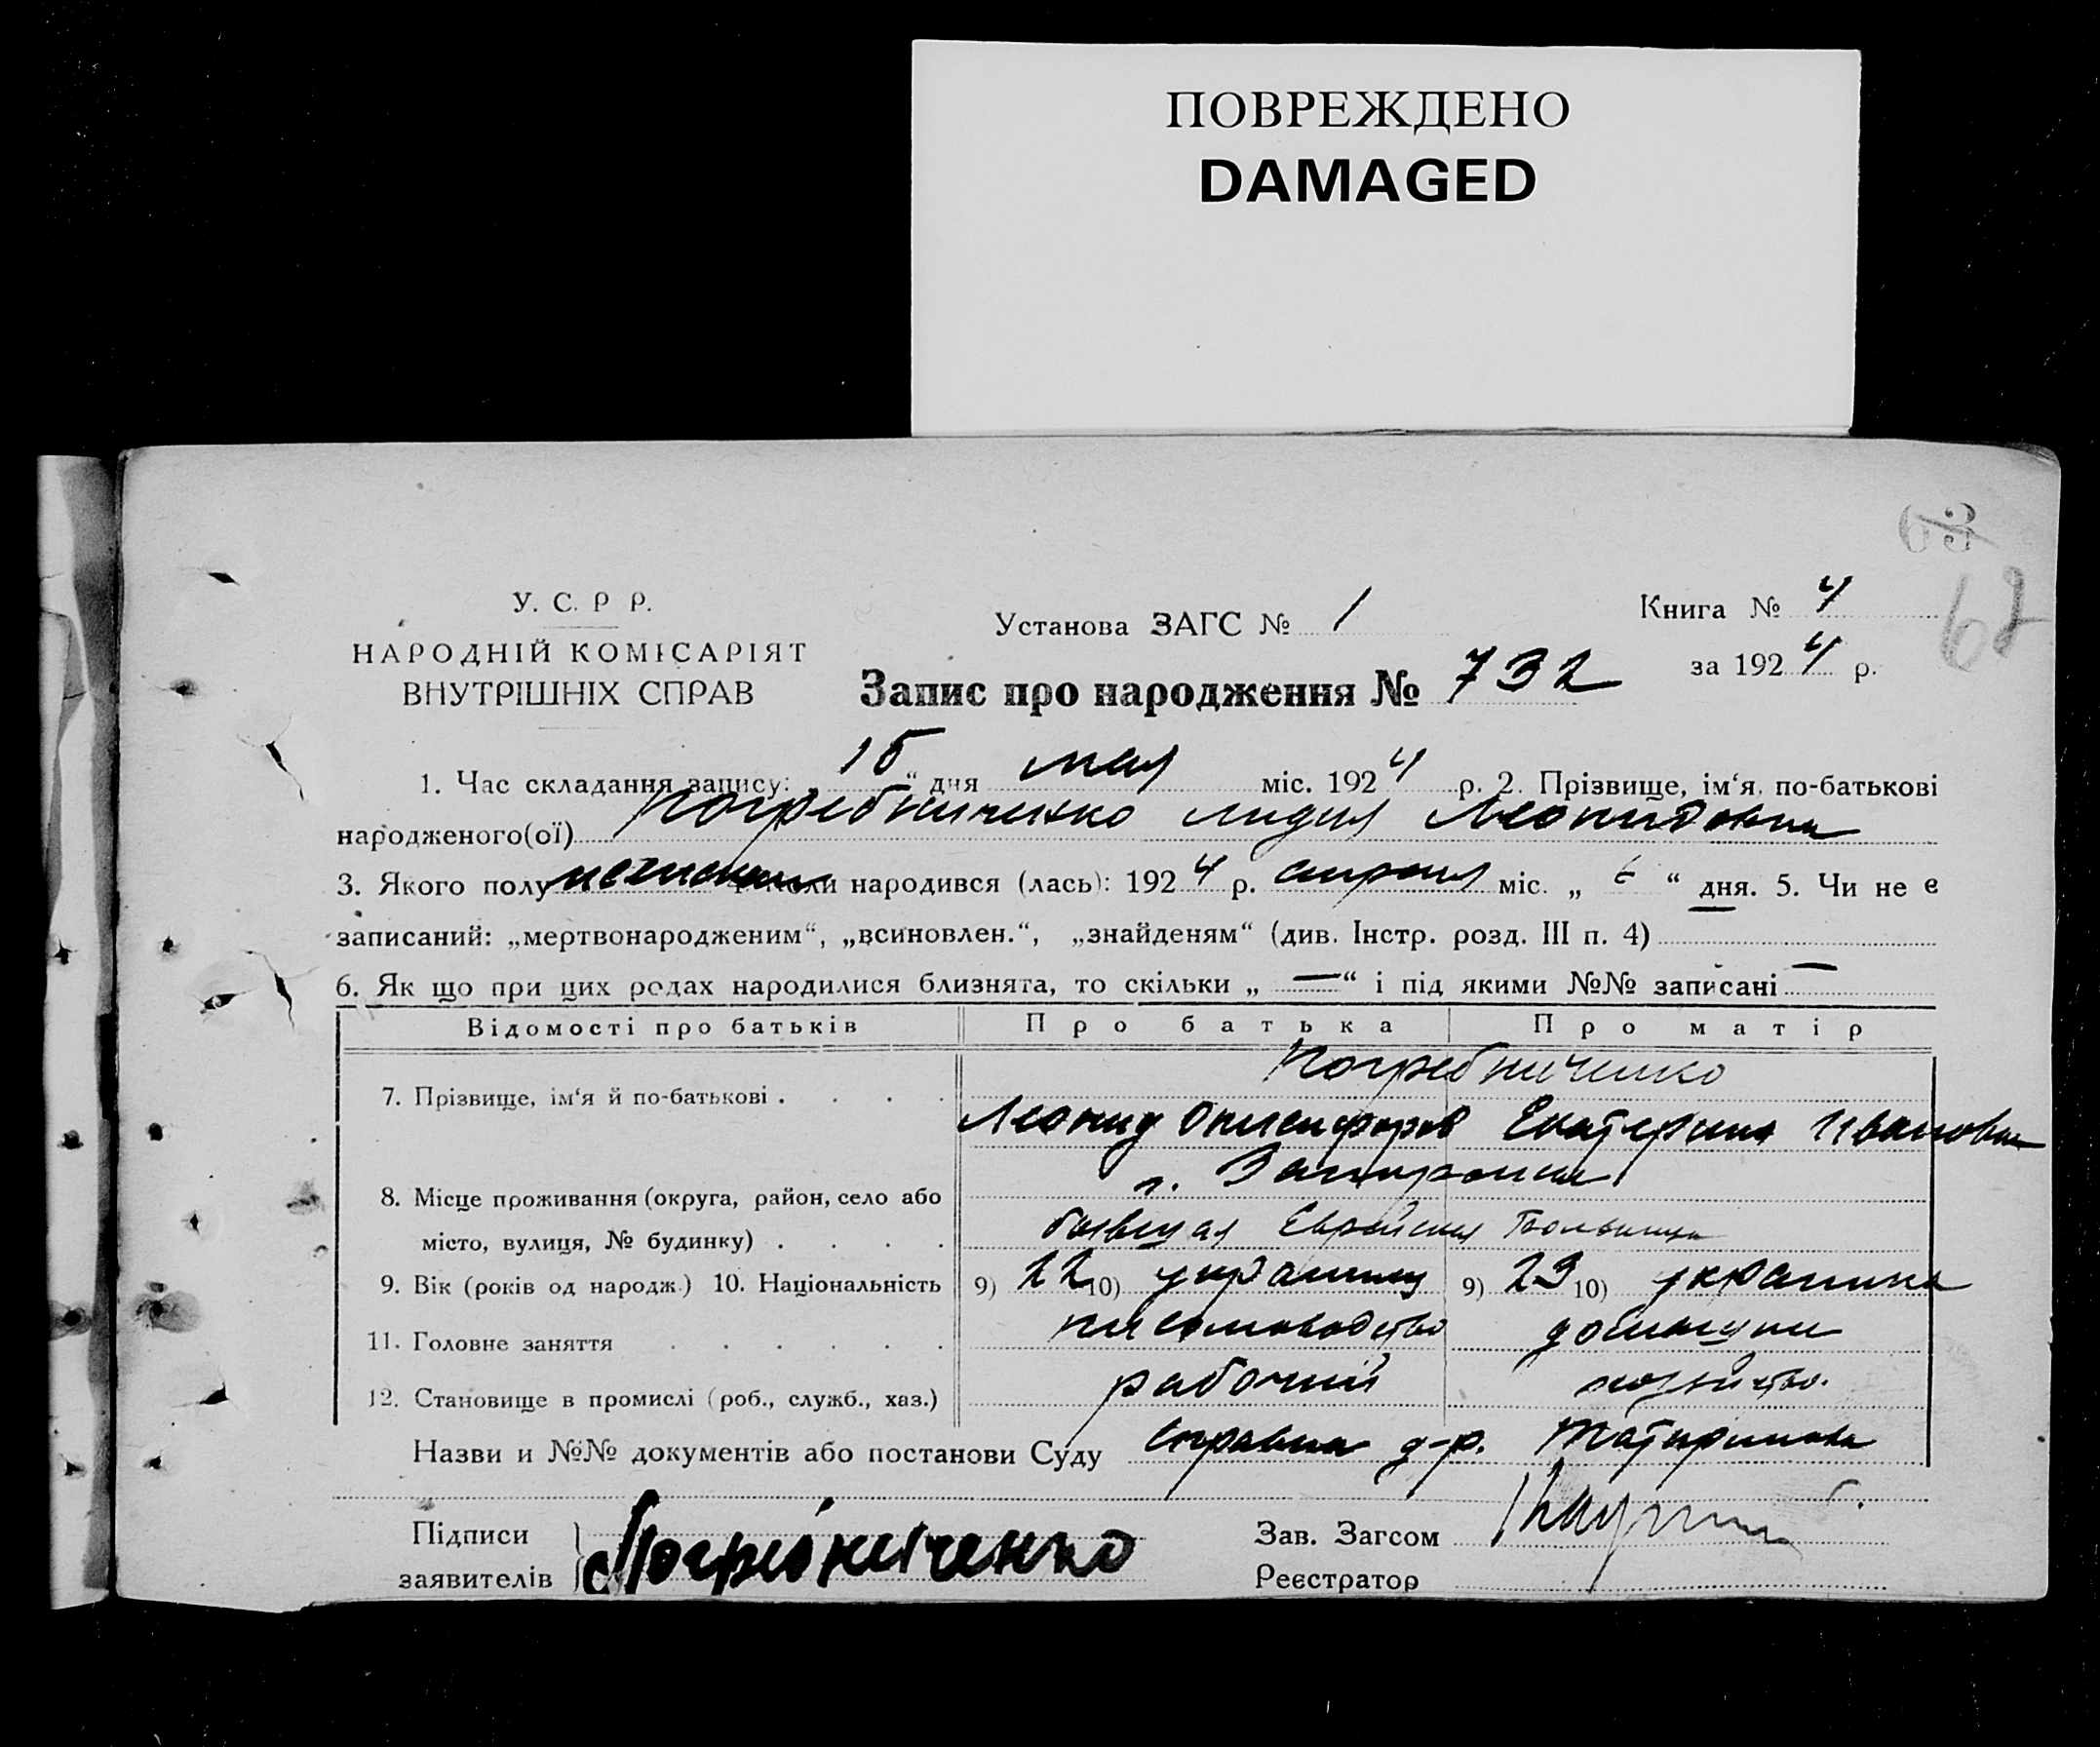 ПОВРЕЖДЕНО
DAMAGED
63
62
У. С. Р Р.
НАРОДНІЙ КОМІСАРІЯТ
ВНУТРІШНІХ СПРАВ
Установа ЗАГС № 1
Книга № 4
за 1924 р.
Запис про народження № 732
1. Час складання запису: 15 “ дня мая міс. 1924 р. 2. Прізвище, ім‘я, по-батькові
народженого(ої) Погребниченко Лидия Леонидовна
3. Якого полу женский коли народився (лась): 1924 р. апреля міс. „ 6 “ дня. 5. Чи не є
записаний: „мертвонародженим“, „всиновлен.“, „знайденям“ (див. Інстр. розд. III п. 4)
6. Як що при цих родах народилися близнята, то скільки „ — “ і під якими №№ записані —
Відомості про батьків Про батька Про матір
Погребниченко
7. Прізвище, ім‘я й по-батькові . . . .
Леонид Онисифоров Екатерина Ивановна
г. Запорожье
8. Місце проживання (округа, район, село або
місто, вулиця, № будинку) . . . .
бывшая Еврейская Больница
9. Вік (років од народж.) 10. Національність 9) 22 10) украинец 9) 23 10) украинка
11. Головне заняття . . . . . . письмоводство домашнее
12. Становище в промислі (роб., служб., хаз.) рабочий хозяйство.
Назви и №№ документів або постанови Суду справка д-р.
Підписи
заявителів
Погребниченко
Зав. Загсом
Реєстратор